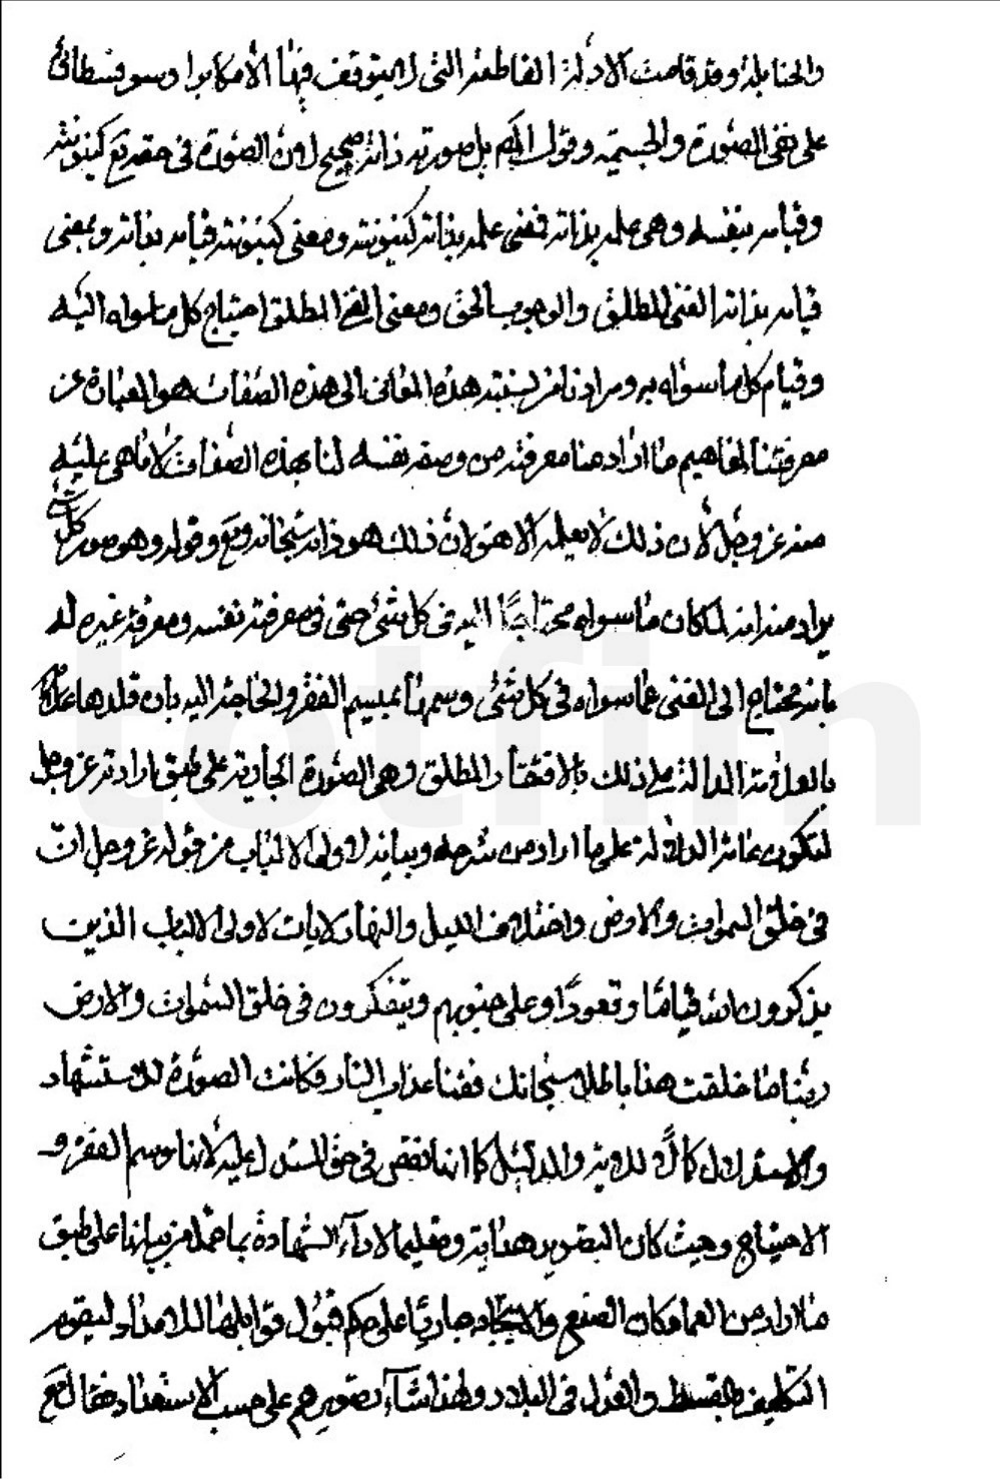 والحنابلة وقد قامت الادلة القاطعة التي لا يتوقف فيها الا مكابر او سوفسطائي
على نفي الصورة والجسمية وقول الحكم بل صورته ذاته صحيح لان الصورة في حقه تع كينونته
وقيامه بنفسه وهي علمه بذاته فمعنى علمه بذاته كينونته ومعنى كينونته قيامه بذاته ومعنى
قيامه بذاته الغنى المطلق والوجوب الحق ومعنى الغنى المطلق احتياج كل ما سواه اليه
وقيام كل ما سواه به ومرادنا من نسبة هذه المعاني الى هذه الصفات هو العبارة عن
معرفتنا لمفاهيم ما اراد منا معرفته من وصفه نفسه لنا بهذه الصفات لا ما هي عليه
منه عز وجل لان ذلك لا يعلمه الا هو لان ذلك هو ذاته سبحانه وتع وقوله وهو صور كل شيء
يراد منه انه لما كان ما سواه محتاجًا اليه في كل شيء حتى في معرفة نفسه ومعرفة غيره له
بانه محتاج الى الغني عما سواه في كل شيء وسمها بميسم الفقر والحاجة اليه بان قلدها
بالعلامة الدالة على ذلك بالافتقار المطلق وهي الصورة الجارية على طبق ارادته عز وجل
لتكون الدلالة على ما اراد من شرحه وبيانه لاولي الالباب من قوله عز وجل ان
في خلق السموات والارض واختلاف الليل والنهار لايات لاولي الالباب الذين
يذكرون الله قيامًا وقعودًا وعلى جنوبهم ويتفكرون في خلق السموات والارض
ربنا ما خلقت هذا باطلا سبحانك فقنا عذاب النار فكانت الصورة للاستشهاد
والاستدلال كمالًا للدوية والدليل كما انها نقص في حق المستدل عليه لانها وسم الفقر و
الاحتياج وحيث كان التصوير هداية وتعليما لاداء الشهادة بما حملهم من بيانها على طبق
ما اراد من العباد كان الصنع والايجاد جاريًا على حكم قبول قوابلها للامداد ليقوم
التكليف بالقسط والعدل في البلاد ولهذا شاء تصويرهم على حسب الاستعداد فقال تع